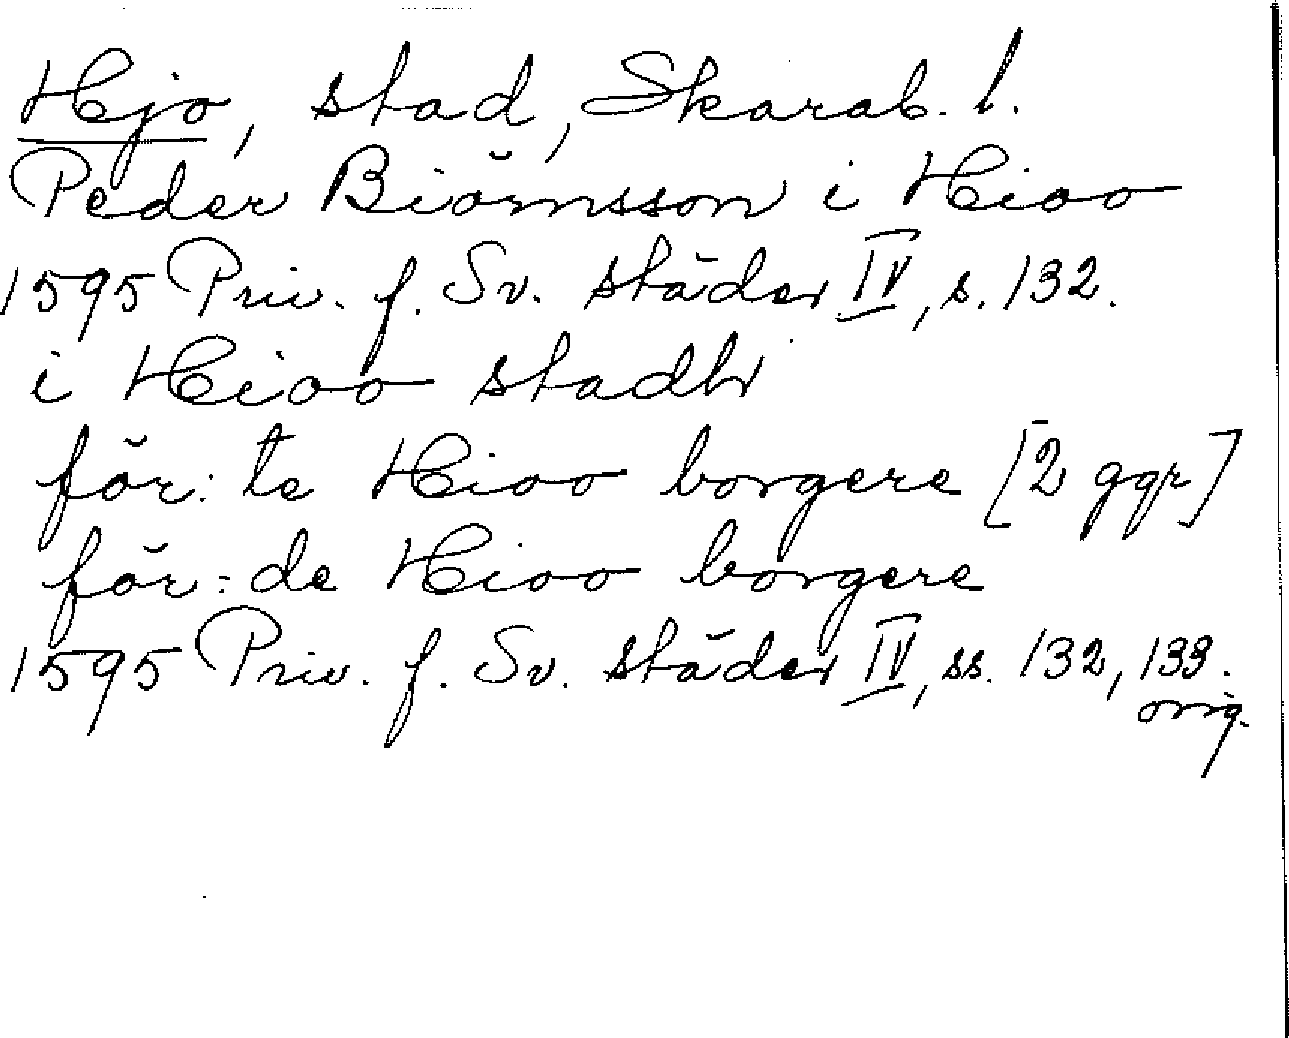 Hjo, stad, Skarab. l.
Peder Biörnsson i Hioo
1595 Priv. f. Sv. städer IV, s. 132.
i Hioo stadh
för: te Hioo borgere [2 ggr]
för: de Hioo borgere
1595 Priv. f. Sv. städer IV, ss. 132, 133.
orig.